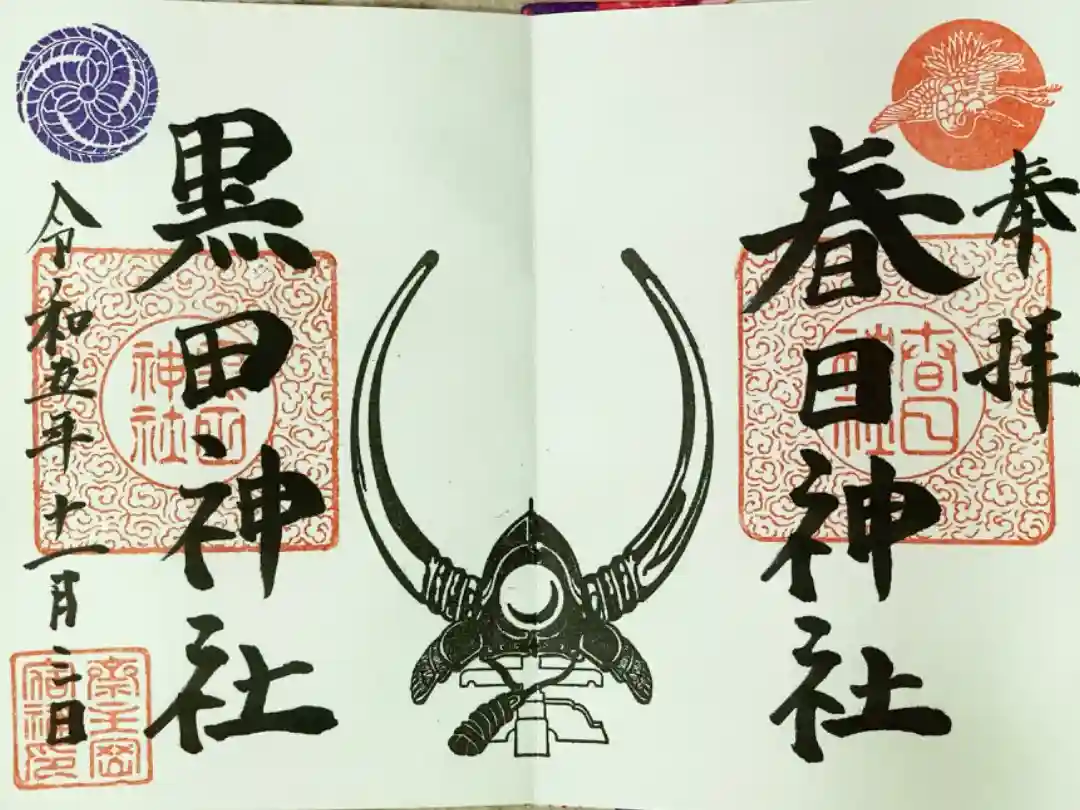 奉拝
春日神社
春日神社
黒田神社
黒田神社
令和五年十一月三日